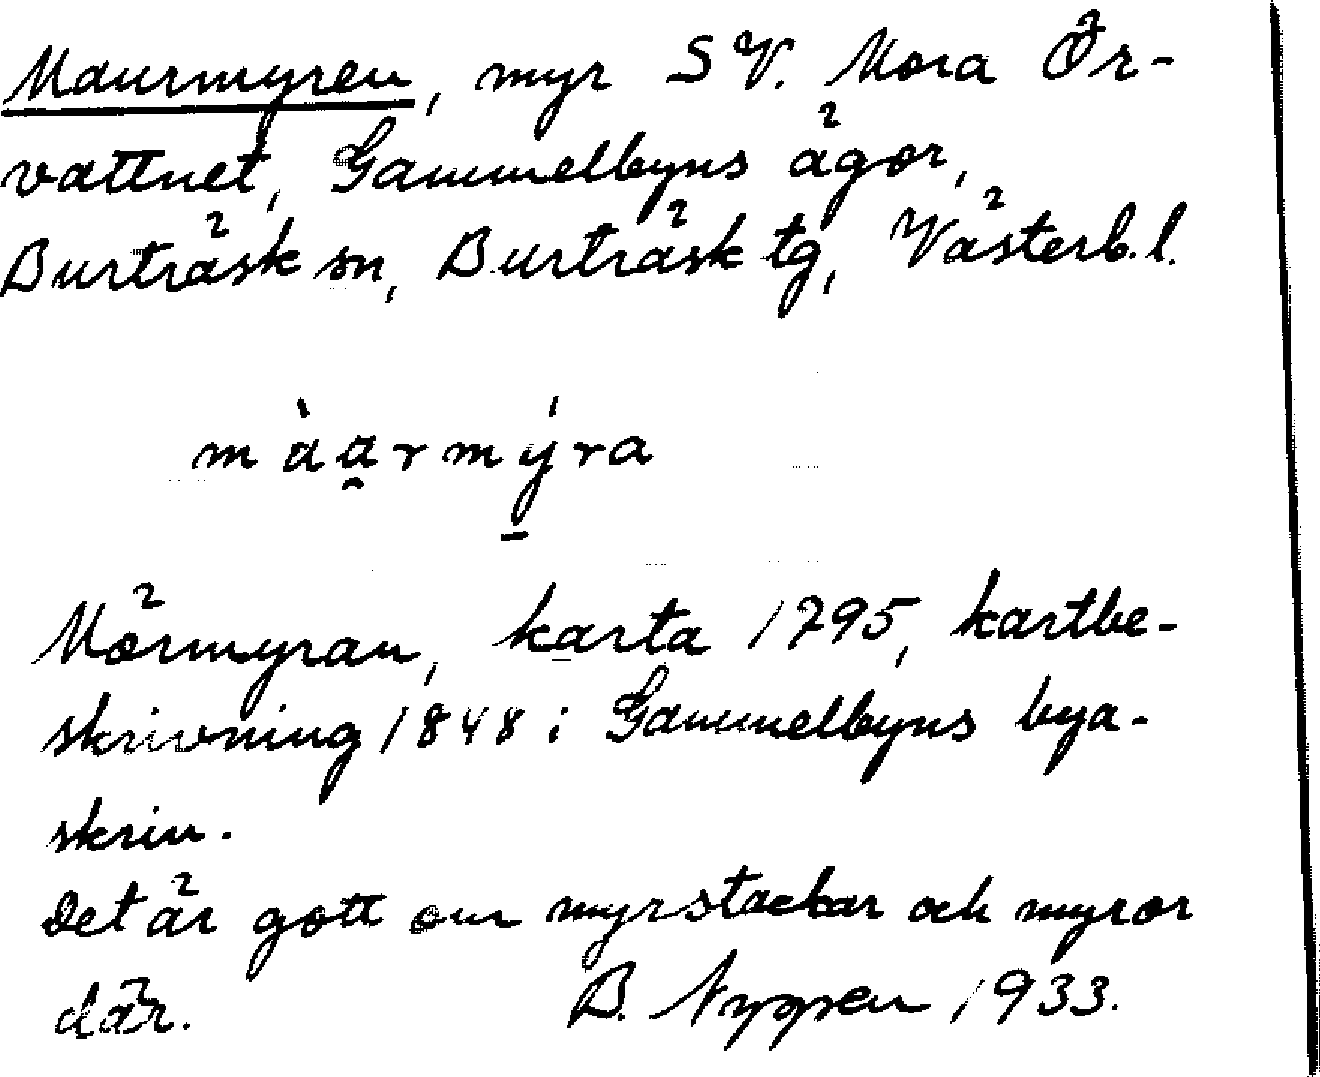 Maurmyren, myr SV. Mora Ör-
vattnet, Gammelbyns ägor,
Burträsk sn, Burträsk tg, Västerb. l.
m à a̯ r m ý̠ r a
Mörmyran, karta 1795, kartbe-
skrivning 1848 i Gammelbyns bya-
skrin.
Det är gott om myrstackar och myror
där. B. Nygren 1933.